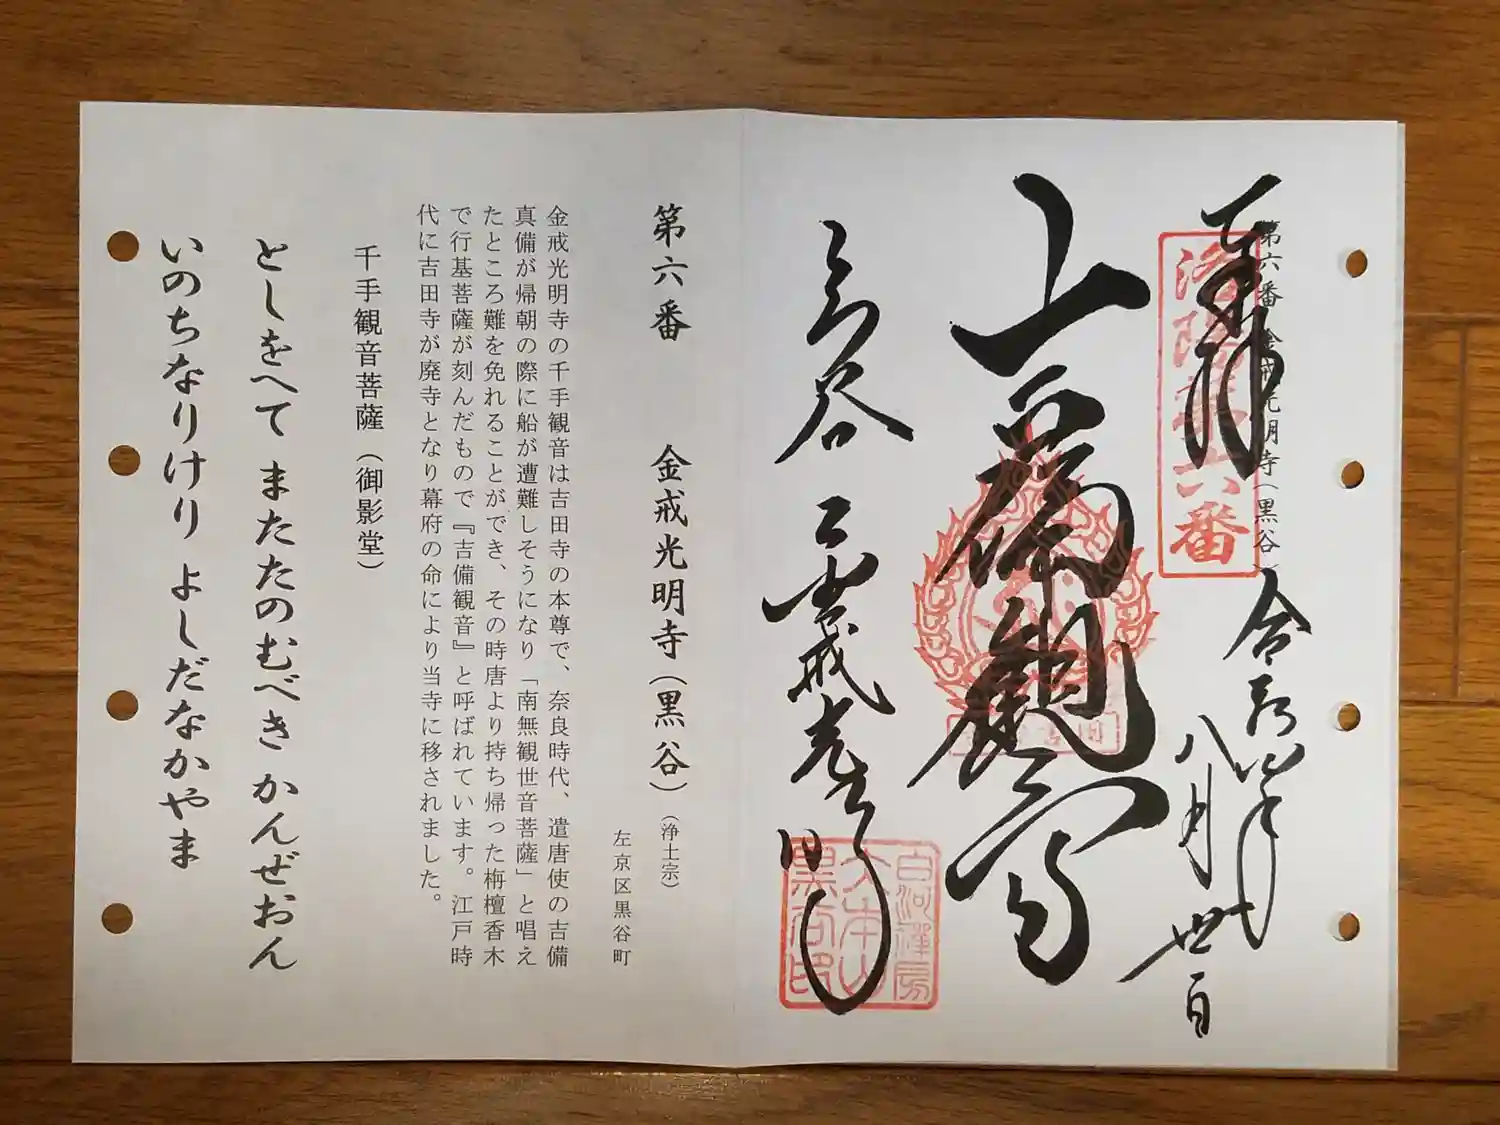 第六番 金戒光明寺(黒谷)
奉拝
洛陽第六番
令和四年
八月廿一日
吉備観音
黒谷 金戒光明寺
白河禅房
大本山
黒谷印
第六番 金戒光明寺(黒谷)(浄土宗)
左京区黒谷町
金戒光明寺の千手観音は吉田寺の本尊で、奈良時代、遣唐使の吉備
真備が帰朝の際に船が遭難しそうになり「南無観世音菩薩」と唱え
たところ難を免れることができ、その時唐より持ち帰った栴檀香木
で行基菩薩が刻んだもので『吉備観音』と呼ばれています。江戸時
代に吉田寺が廃寺となり幕府の命により当寺に移されました。
千手観音菩薩(御影堂)
としをへて またたのむべき かんぜおん
いのちなりけり よしだなかやま